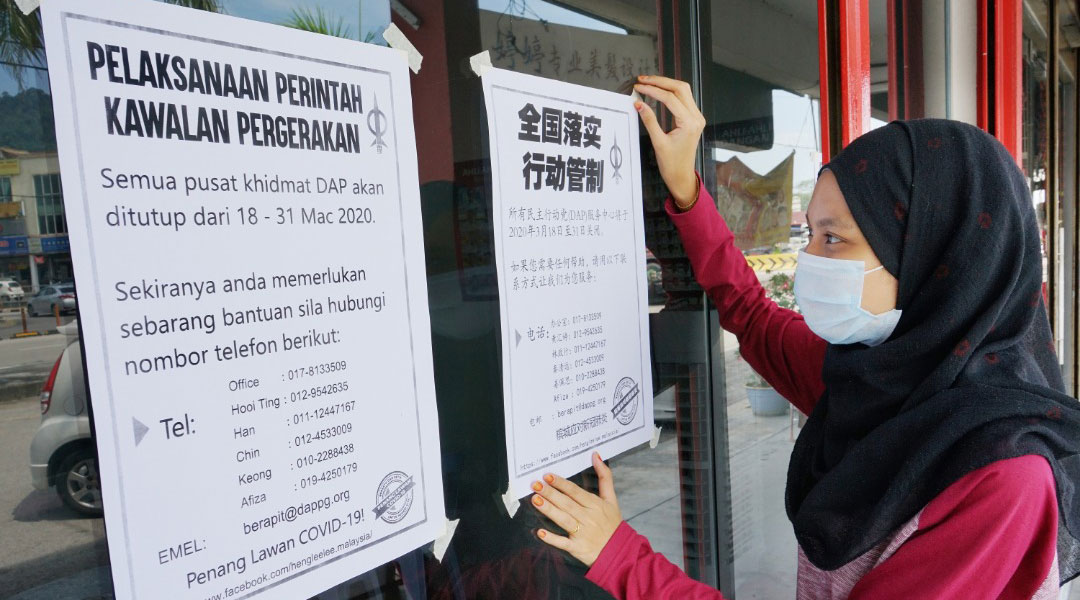 PELAKSANAAN PERINTAH
KAWALAN PERGERAKAN
Semua pusat khidmat DAP akan
ditutup dari 18 - 31 Mac 2020.
Sekiranya anda memerlukan
sebarang bantuan sila hubungi
nombor telefon berikut:
Tel:
Office : 017-8133509
Hooi Ting : 012-9542635
Han : 011-12447167
Chin : 012-4533009
Keong : 010-2288438
Afiza : 019-4250179
EMEL: berapit@dappg.org
Penang Lawan COVID-19!
www.facebook.com/hengleelee.malaysia/
婷婷专业美髮设计
全国落实
行动管制
所有民主行动党(DAP)服务中心将于
2020年3月18日至31日关闭。
如果您需要任何帮助，请用以下联
系方式让我们为您服务：
电话:
办公室: 017-8133509
: 012-9542635
: 011-12447167
: 012-4533009
: 010-2288438
Afiza : 019-4250179
电邮 : berapit@dappg.org
https://www.facebook.com/hengleelee.malaysia/